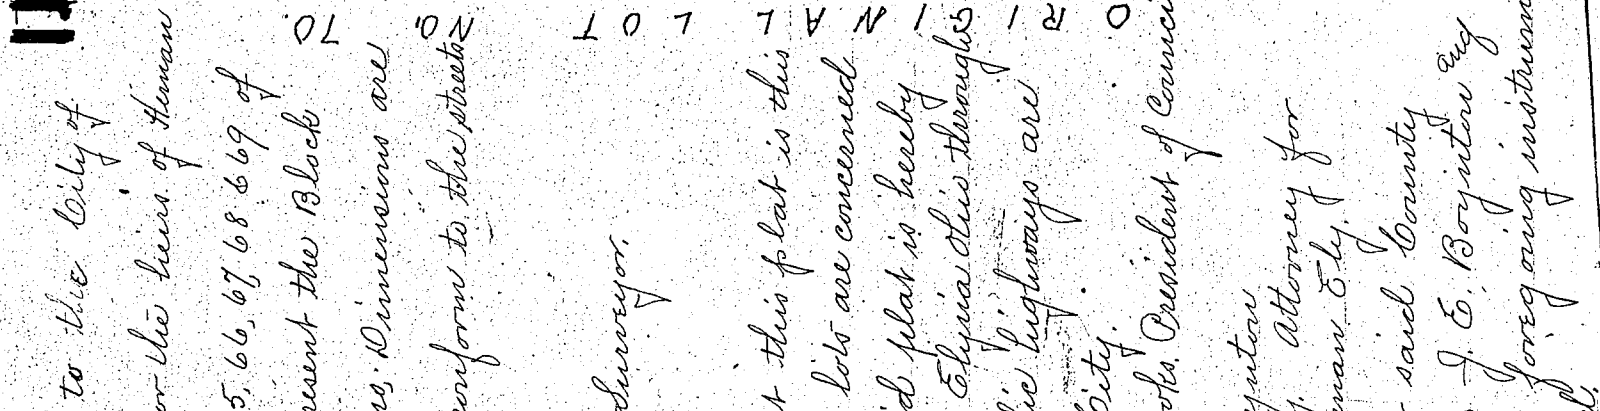 to the City of
or the heirs of Heman
5, 66, 67, 68 & 69 of
resent the Block
ns. Dimensions are
conform to the streets
Surveyor.
t this plat is this
lots are concerned
d plat is hereby
Elyria Ohio through
lic highways are
City.
oks. President of Counci
ynton
y. Attorney for
man Ely.
said County
J. E. Boynton
foregoing instrum
ORIGINAL LOT NO. TO.